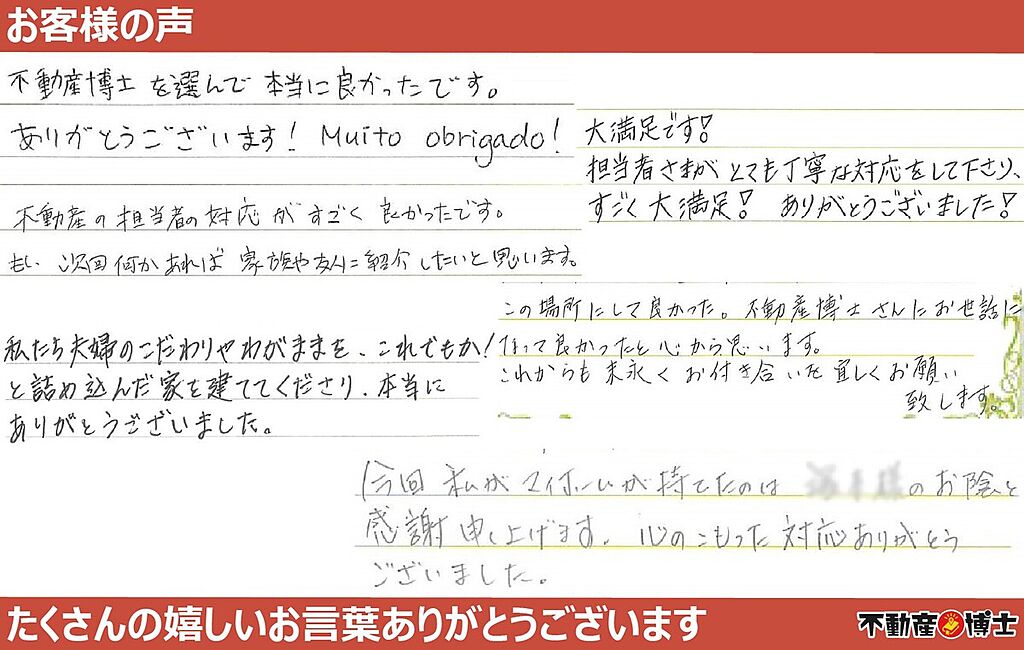 お客様の声
不動産博士を選んで本当に良かったです。
ありがとうございます! Muito obrigado!
大満足です!
担当者さまがとても丁寧な対応をして下さり、
すごく大満足! ありがとうございました!
不動産の担当者の対応がすごく良かったです。
もい次回何かあれば家族や友人に紹介したいと思います。
この場所にして良かった。不動産博士さんにお世話に
なって良かったと心から思います。
これからも末永くお付き合いを宜しくお願い
致します。
私たち夫婦のこだわりやわがままを、これでもか!
と詰め込んだ家を建ててくださり、本当に
ありがとうございました。
今回私がマイホームが持てたのは のお陰と
感謝申し上げます。心のこもった対応ありがとう
ございました。
たくさんの嬉しいお言葉ありがとうございます
不動産博士